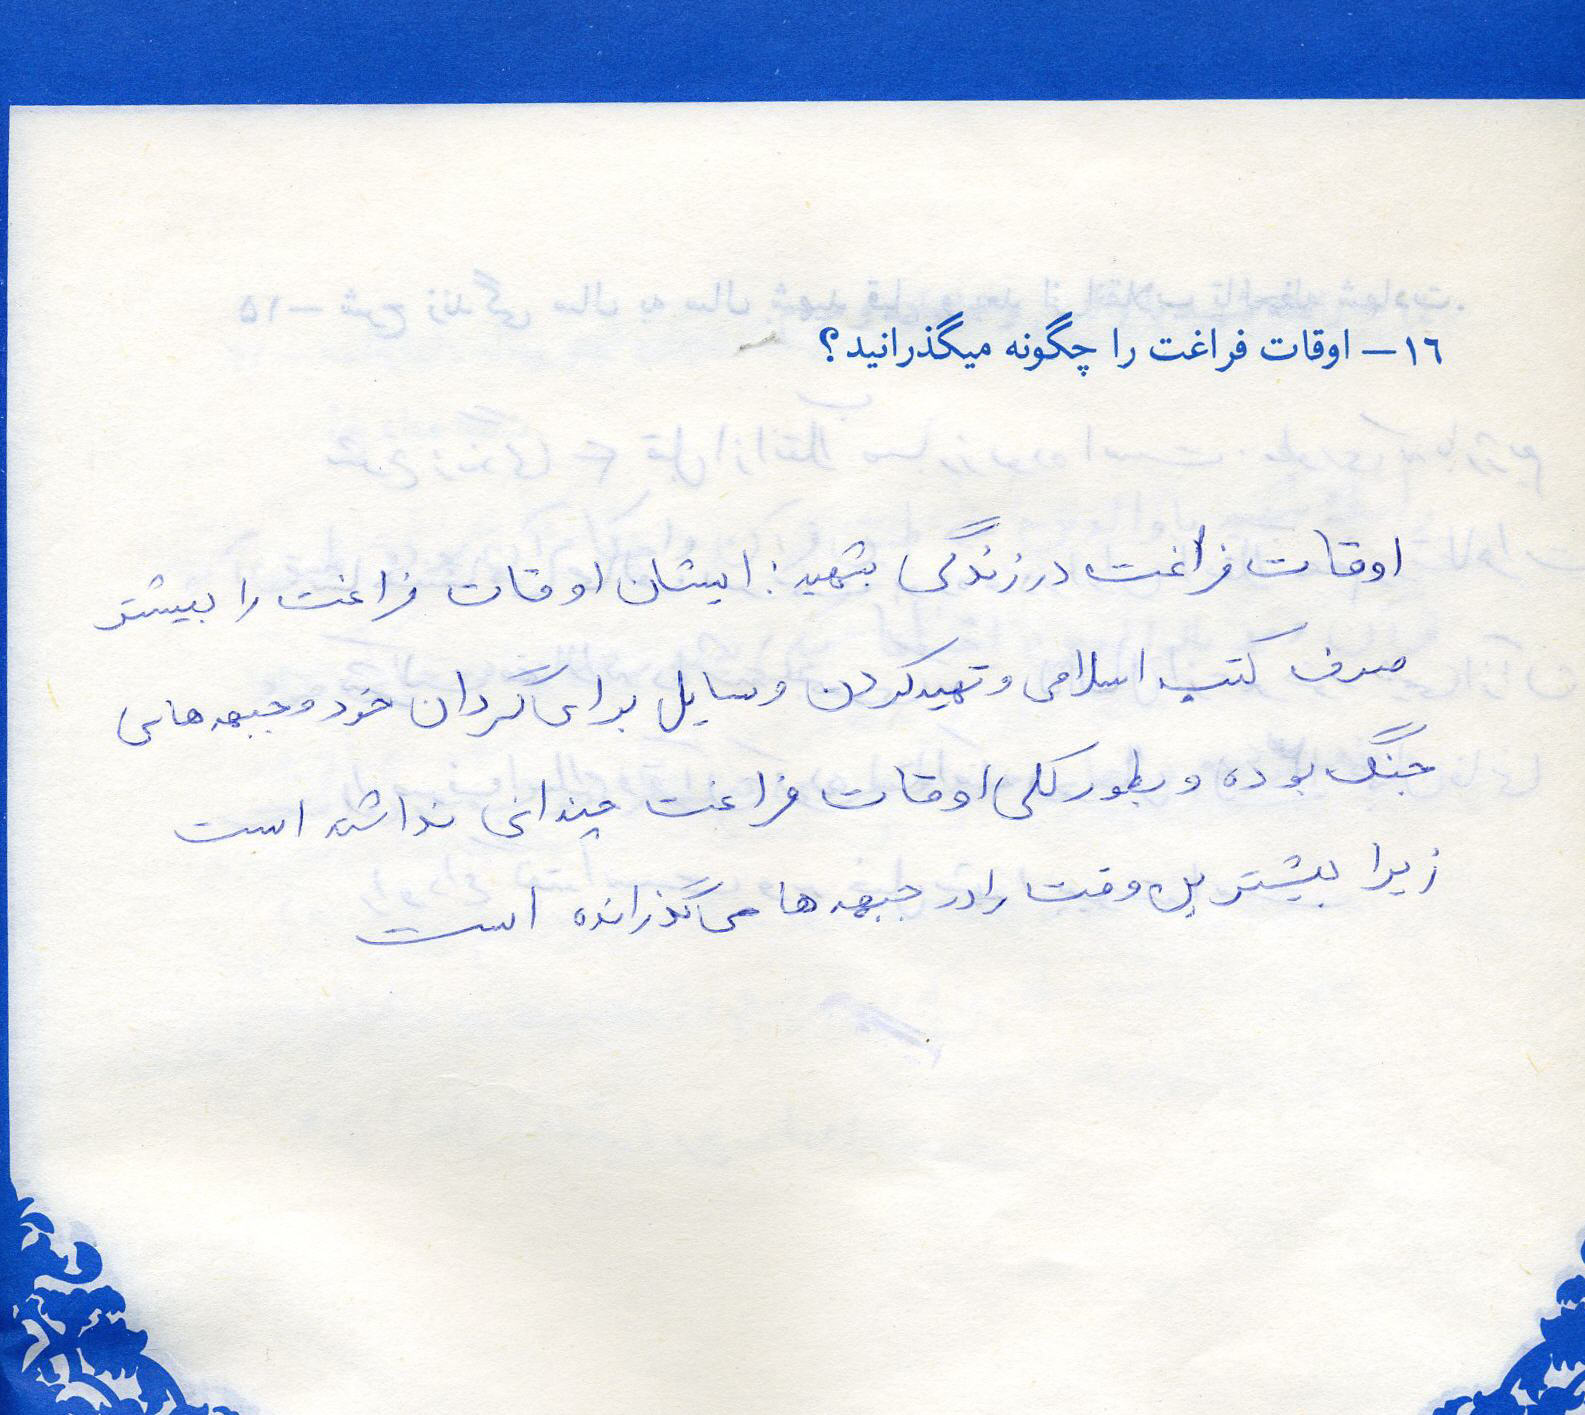 ۱۶ـ اوقات فراغت را چگونه میگذرانید؟
اوقات فراغت در زندگی شهید: ایشان اوقات فراغت را بیشتر
صرف کتب اسلامی و تهیه کردن وسایل برای گردان خود و جبهه های
جنگ بوده و بطور کلی اوقات فراغت چندانی نداشته است
زیرا بیشتر وقت را در جبهه ها می گذرانده است